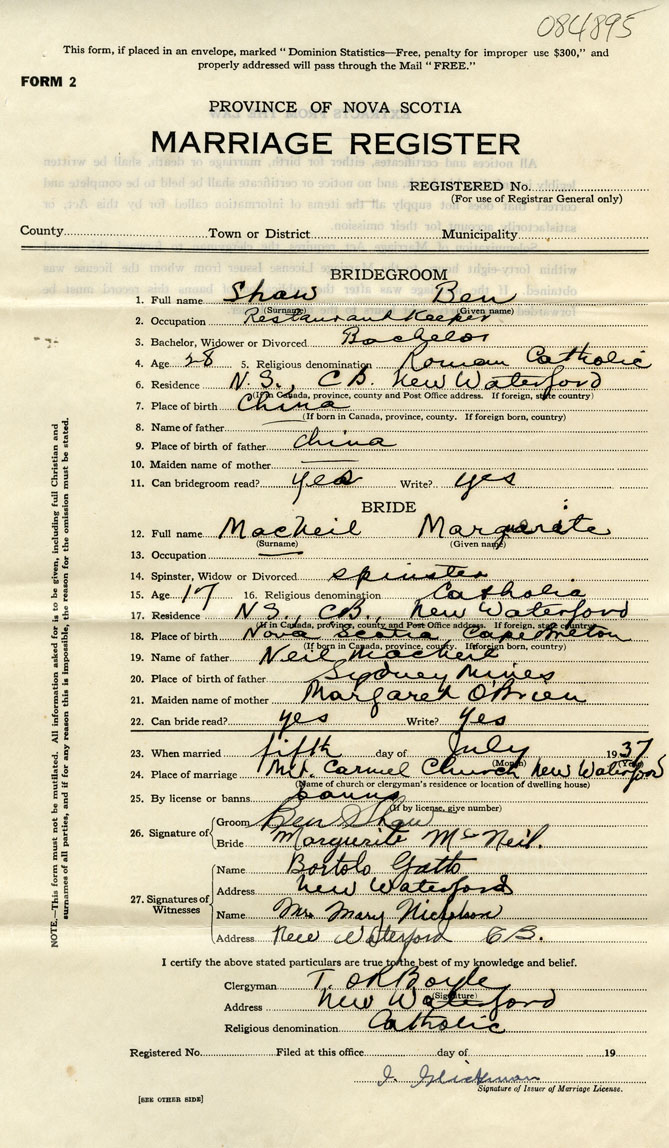 084895
This form, if placed in an envelope, marked "Dominion Statistics—Free, penalty for improper use $300," and
properly addressed will pass through the Mail "FREE."
FORM 2
PROVINCE OF NOVA SCOTIA
MARRIAGE REGISTER
REGISTERED No.
(For use of Registrar General only)
County Town or District Municipality
BRIDEGROOM
1. Full name Shaw Ben
(Surname) (Given name)
2. Occupation Restaurant Keeper
3. Bachelor, Widower or Divorced Bachelor
4. Age 28 5. Religious denomination Roman Catholic
6. Residence N.S., C.B. New Waterford
(If in Canada, province, county and Post Office address. If foreign, state country)
7. Place of birth China
(If born in Canada, province, county. If foreign born, country)
8. Name of father —
9. Place of birth of father China
10. Maiden name of mother —
11. Can bridegroom read? yes Write? yes
BRIDE
12. Full name MacNeil Marguerite
(Surname) (Given name)
13. Occupation —
14. Spinster, Widow or Divorced spinster
15. Age 17 16. Religious denomination Catholic
17. Residence N.S., C.B., New Waterford
(If in Canada, province, county and Post Office address. If foreign, state country)
18. Place of birth Nova Scotia Cape Breton
(If born in Canada, province, county. If foreign born, country)
19. Name of father Neil MacNeil
20. Place of birth of father Sydney Mines
21. Maiden name of mother Margaret O'Brien
22. Can bride read? yes Write? Yes
23. When married fifth day of July 1937
(Month) (Year)
24. Place of marriage Mt. Carmel Church New Waterford
(Name of church or clergyman's residence or location of dwelling house)
25. By license or banns banns
(If by license, give number)
26. Signature of Groom Ben Shaw
Bride Marguerite McNeil.
27. Signatures of Witnesses
Name Bortolo Gatto
Address New Waterford
Name Mrs Mary Nicholson
Address New Waterford C.B.
I certify the above stated particulars are true to the best of my knowledge and belief.
Clergyman T. O'R Boyle
(Signature)
Address New Waterford
Religious denomination Catholic
Registered No. Filed at this office day of 19
Signature of Issuer of Marriage License.
[SEE OTHER SIDE]
NOTE.—This form must not be mutilated. All information asked for is to be given, including full Christian and
surnames of all parties, and if for any reason this is impossible, the reason for the omission must be stated.